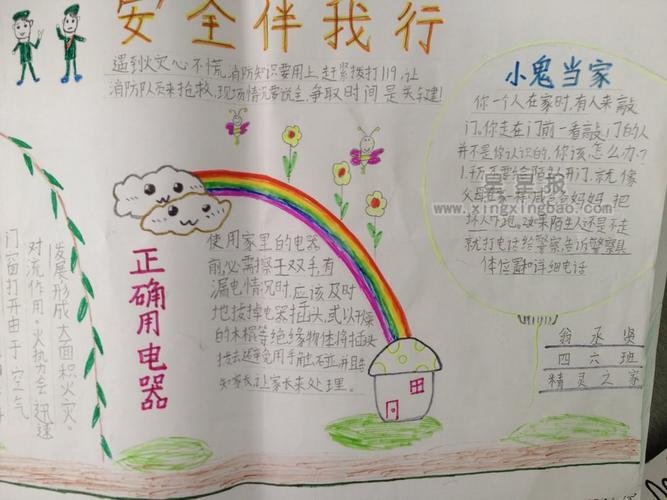 安全伴我行
遇到火灾心不慌,消防知识要用上,赶紧拨打119,让
消防队员来抢救,现场情况要说全,争取时间是关键!
小鬼当家
你一个人在家时,有人来敲
门。你走在门前一看敲门的人
并不是你认识的,你该怎么办?
父母在家一样喊爸爸妈妈,把
就打电话给警察,告诉警察具
体位置和详细电话
星星报
www.xingxingbao.com
正确用电器
使用家里的电器
前,必需擦干双手,有
漏电情况时,应该及时
地拔掉电器插头,或以干燥
的木棍等绝缘物体将插头
知家长,让家长来处理。
发展形成大面积火灾。
对流作用。火热力会迅速
门窗打开由于空气
翁丞贤
四六班
精灵之家